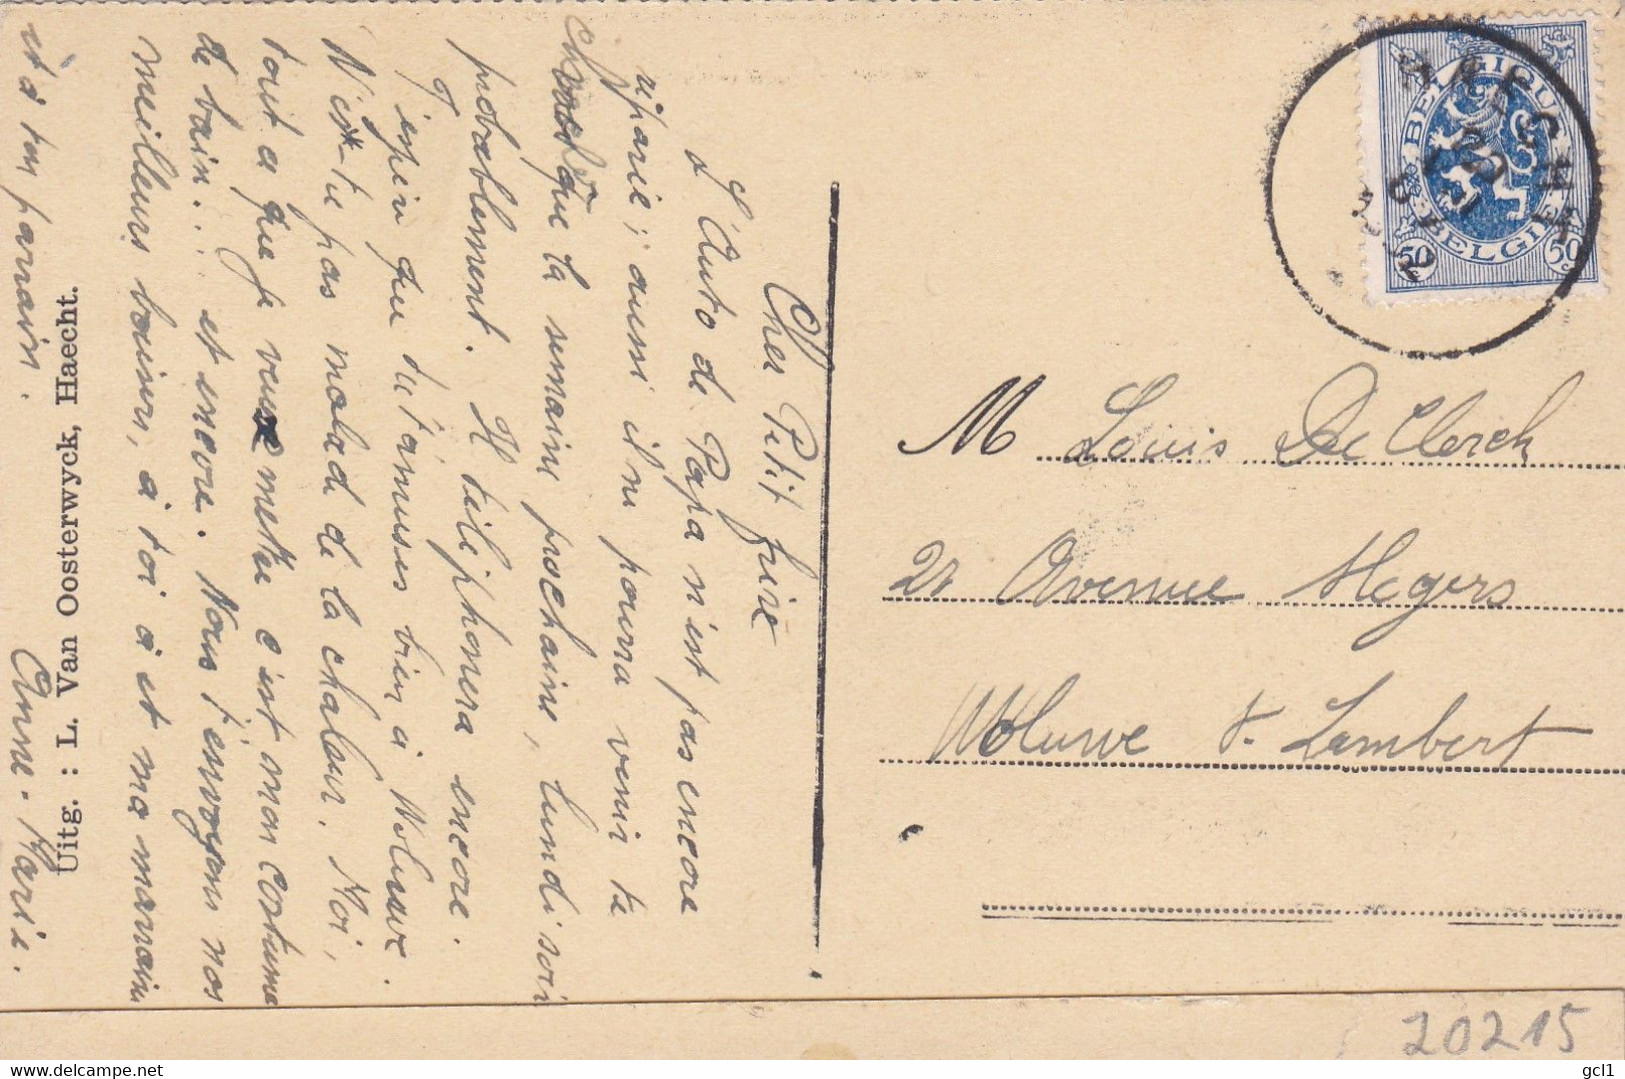 Cher Petit frère
L'Auto de Papa n'est pas encore
réparée; aussi il ne pourra venir te
chercher que la semaine prochaine, lundi soir
probablement. Il téléphonera encore.
J'espère que tu t'amuses bien à Woluwe.
N'es-tu pas malade de la chaleur. Moi,
tout ce que je veux mettre c'est mon costume
de bain... et encore. Nous t'envoyons nos
meilleurs baisers, à toi à et ma marraine
et à ton parrain.
Anne-Marie.
Uitg. : L. Van Oosterwyck, Haecht.
BELGIQUE
BELGIË
50 c
50 c
HAECHT
20
8
32
M Louis De Clerck
21 Avenue Hegers
Woluwe S. Lambert
20215
gcl1